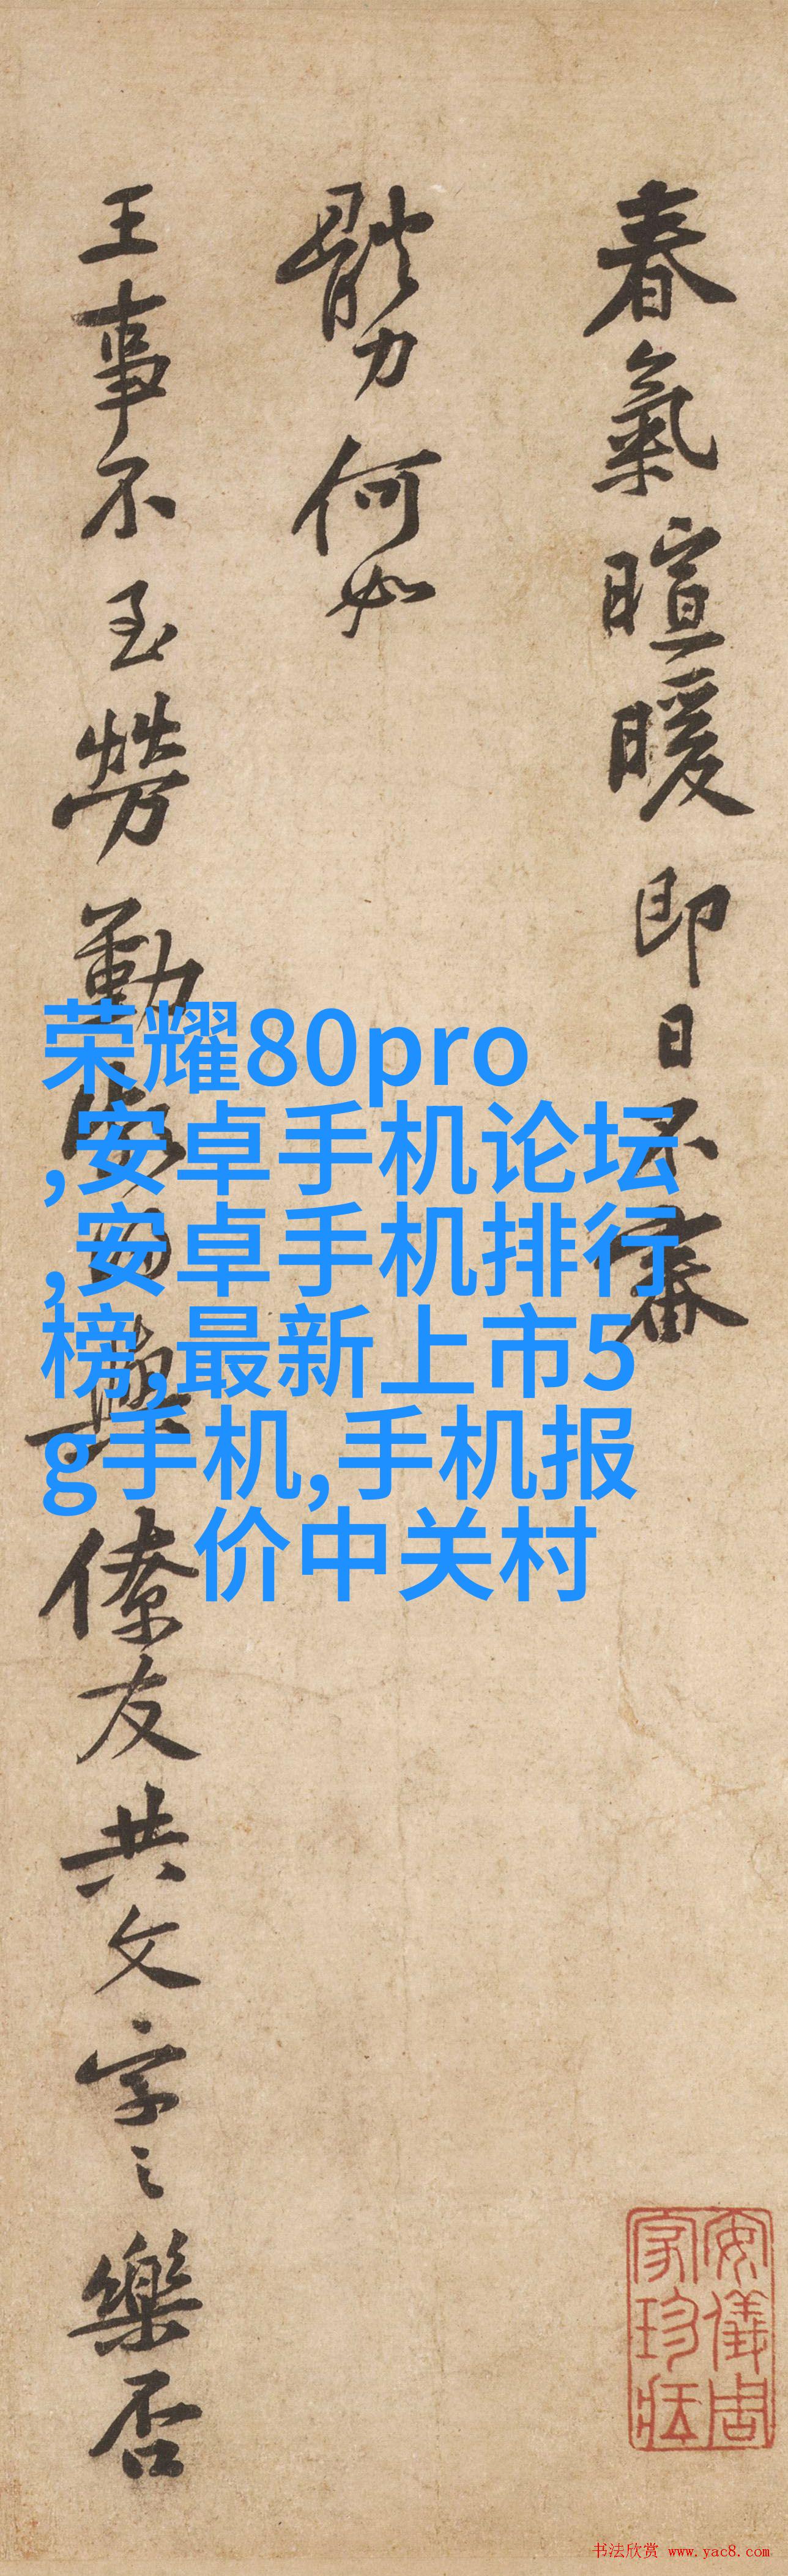 春氣暄暖即日不審
體力何如
王事不至勞勤
僚友共文字之樂否
荣耀80pro
,安卓手机论坛
,安卓手机排行
榜,最新上市5
g手机,手机报
价中关村
安儀周
家珍藏
书法欣赏 www.yac8.com